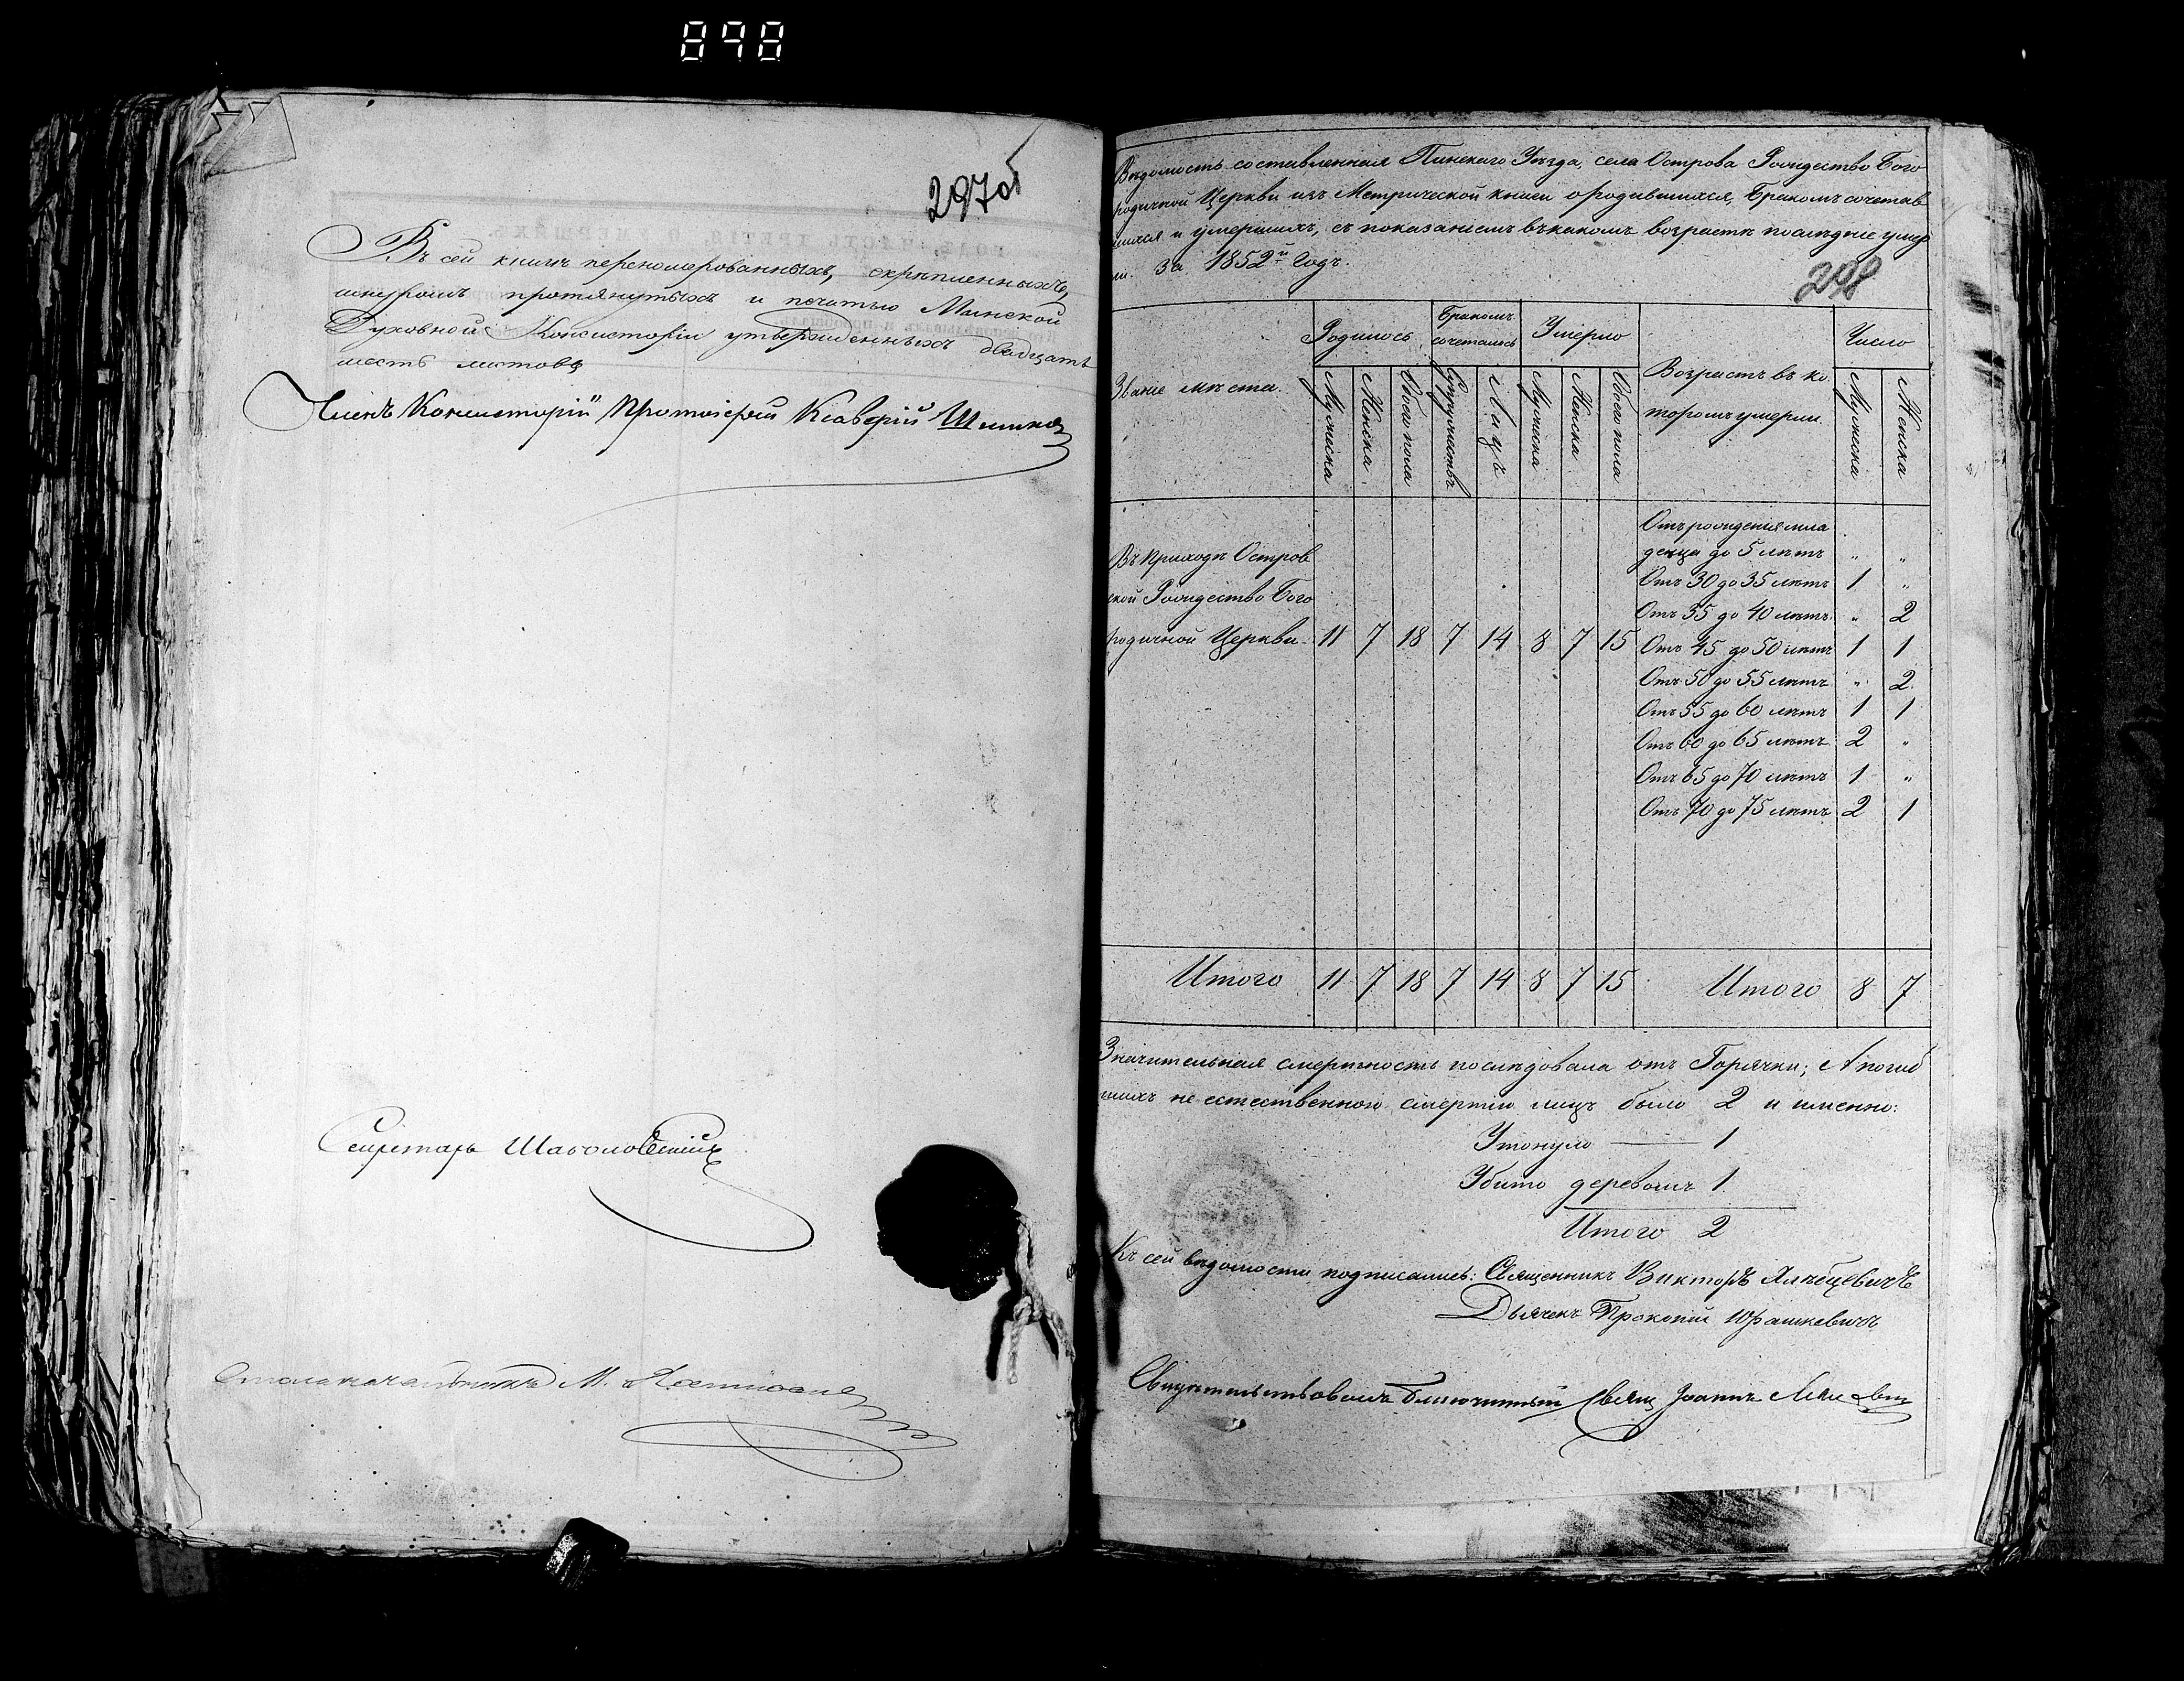 898
297об
Въ сей книгѣ перенумерованныхъ, скрѣпленныхъ,
шнуромъ протянутыхъ и печатью Минской
Духовной Консисторіи утвержденныхъ двадцать
шесть листовъ
Членъ Консисторіи Протоіерей Ксаверій
Секретарь
Столоначальникъ М.
Вѣдомость составленная Пинскаго Уѣзда, села Острова Рождество Бого
родичной Церкви изъ Метрической книги о родившихся, Бракомъ сочетав
шихся и умершихъ, съ показаніемъ въ какомъ возрастѣ послѣдніе умер
ли. За 1852й Годъ.
298
Званіе мѣста. Родилось Бракомъ сочеталось Умерло Возрастъ въ ко Число
торомъ умерли.
Мужеска Женска Обоего пола Супружествъ Лицъ Мужеска Женска Обоего пола Мужеска Женска
Отъ рожденія мла
денца до 5 лѣтъ " "
Отъ 30 до 35 лѣтъ 1 "
Отъ 35 до 40 лѣтъ " 2
Въ приходѣ Остров
ской Рождество Бого
родичной Церкви 11 7 18 7 14 8 7 15 Отъ 45 до 50 лѣтъ 1 1
Отъ 50 до 55 лѣтъ " 2
Отъ 55 до 60 лѣтъ 1 1
Отъ 60 до 65 лѣтъ 2 "
Отъ 65 до 70 лѣтъ 1 "
Отъ 70 до 75 лѣтъ 2 1
Итого 11 7 18 7 14 8 7 15 Итого 8 7
Значительная смертность послѣдовала отъ Горячки; А погиб
шихъ не естественною смертію лицъ было 2 и именно:
Утонуло — 1
Убито деревомъ 1
Итого 2
Къ сей вѣдомости подписались: Священникъ Викторъ
Дьячекъ Прокопій Юрашкевичъ
Свидѣтельствовалъ Благочинный Свящ Іоаннъ